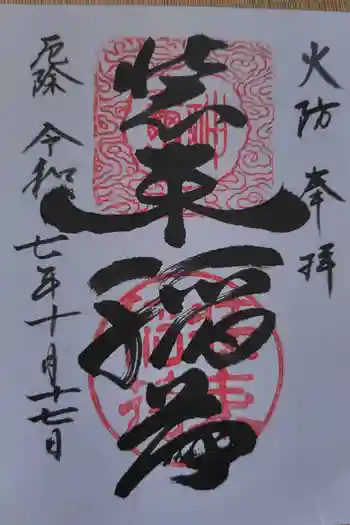 火防 奉拝
装束稲荷
厄除 令和
七年十月十七日